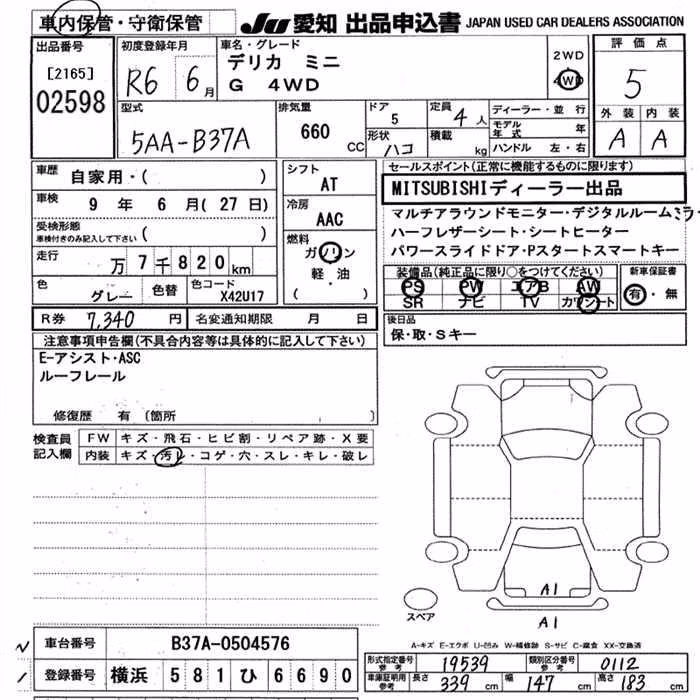 車内保管・守衛保管
JU 愛知 出品申込書 JAPAN USED CAR DEALERS ASSOCIATION
出品番号
[2165]
02598
初度登録年月
R6 6月
車名・グレード
デリカ ミニ
G 4WD
2WD
4WD
評価点
5
外装 内装
A A
型式
5AA-B37A
排気量
660 CC
ドア
5
形状
ハコ
定員
4人
積載
kg
ディーラー・並行
モデル年式 年
ハンドル 左・右
車歴
自家用・( )
車検
9年 6月(27日)
受検形態
車検付きのみ記入して下さい ( )
走行
万7千820km
色
グレー
色替
色コード
X42U17
シフト
AT
冷房
AAC
燃料
ガソリン
軽・油
( )
R券 7,340円
名変通知期限 月 日
セールスポイント(正常に機能するものに限ります)
MITSUBISHIディーラー出品
マルチアラウンドモニター・デジタルルームミラ
ハーフレザーシート・シートヒーター
パワースライドドア・Pスタートスマートキー
装備品(純正品に限り○をつけてください)
PS PW エアB AW
SR ナビ TV カワシート
新車保証書
有・無
後日品
保・取・Sキー
注意事項申告欄(不具合内容等は具体的に記入して下さい)
E-アシスト・ASC
ルーフレール
修復歴 有 〔箇所 〕
検査員記入欄
FW キズ・飛石・ヒビ割・リペア跡・X要
内装 キズ・汚レ・コゲ・穴・スレ・キレ・破レ
A1
A1
スペア
A-キズ E-エクボ U-凹み W-補修跡 S-サビ C-腐食 XX-交換済
車台番号 B37A-0504576
登録番号 横浜 581 ひ 6690
形式指定番号 参考 19539
類別区分番号 参考 0112
車庫証明用 参考 長さ 339 cm 幅 147 cm 高さ 183 cm